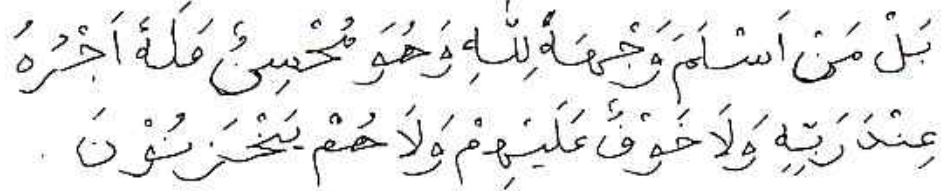 بَلْ مَنْ اَسْلَمَ وَجْهَهُ لِلّٰهِ وَهُوَ مُحْسِنٌ فَلَهٗ اَجْرُهُ
عِنْدَ رَبِّهِ وَلَا خَوْفٌ عَلَيْهِمْ وَلَا هُمْ يَحْزَنُوْنَ .